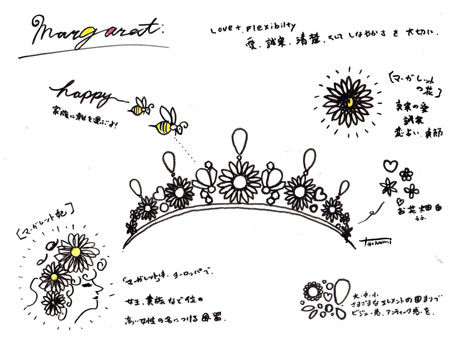 margaret:
Love + Flexibilty
愛、誠実、清楚、そして しなやかさ を 大切に.
happy
家族に幸を運ぶよ!
[マーガレットの花]
真実の愛
誠実
恋占い 貞節
お花畑
[マーガレット妃]
マーガレットは、ヨーロッパで、
女王、貴族 など 位の
高い女性の名につける風習.
大・中・小
さまざまなエレメントの集まりで
ビジュー感、アンティーク感 を.